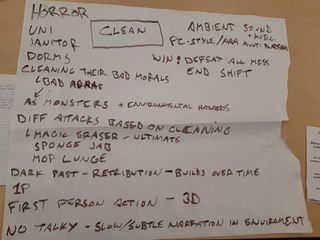 HORROR
UNI
JANITOR
DORMS
CLEAN
AMBIENT SOUND
+ MUSIC
PC-STYLE/AAA MULTI-PLATFORM
WIN! DEFEAT ALL MESS
END SHIFT
CLEANING THEIR BAD MORALS
↳ BAD AURAS
AS MONSTERS + ENVIRONMENTAL HAZARDS
DIFF ATTACKS BASED ON CLEANING
↳ MAGIC ERASER - ULTIMATE
SPONGE JAB
MOP LUNGE
DARK PAST - RETRIBUTION - BUILDS OVER TIME
1P
FIRST PERSON ACTION - 3D
NO TALKY - SLOW/SUBTLE NARRATION IN ENVIROMENT